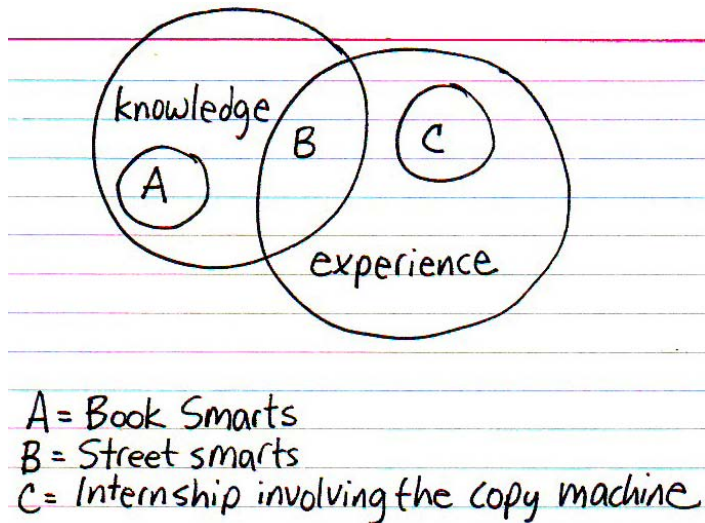 knowledge
B
C
A
experience
A = Book Smarts
B = Street smarts
C = Internship involving the copy machine